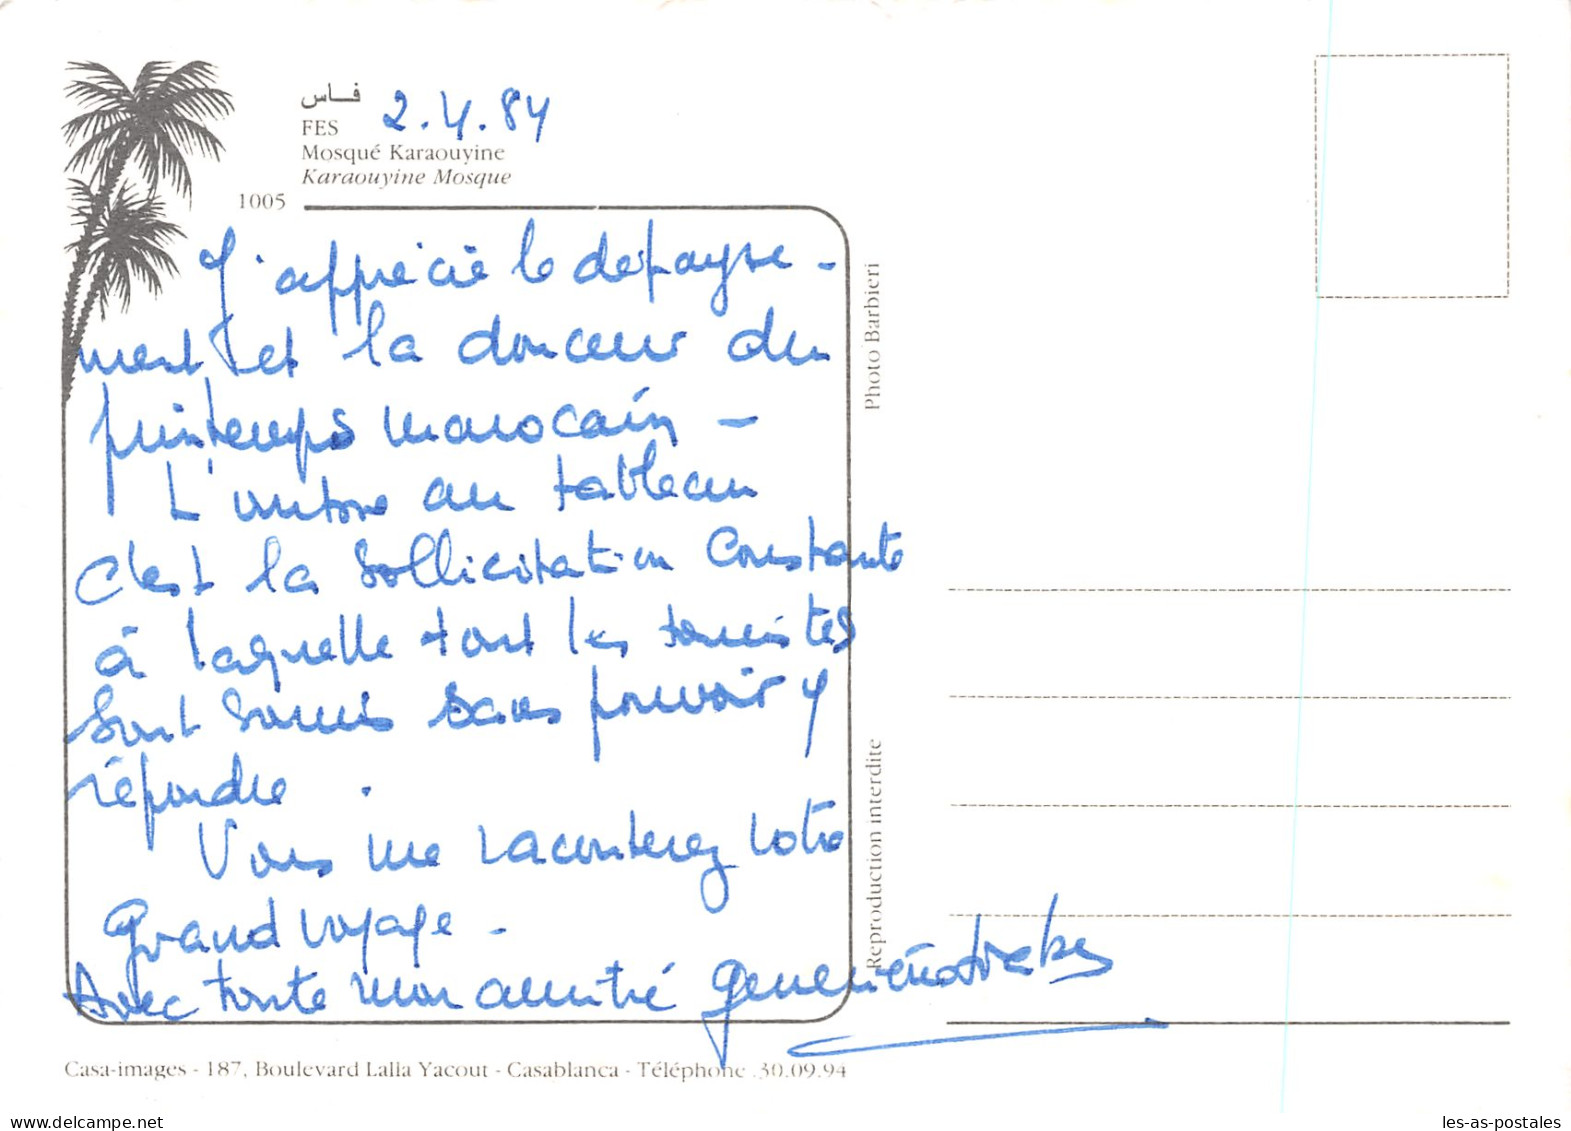 فاس
FES 2.4.84
Mosqué Karaouyine
Karaouyine Mosque
1005
J'apprécie le depayse-
ment et la douceur du
printemps marocain -
L'ombre au tableau
C'est la sollicitation constante
à laquelle tout les touristes
sont soumis sans pouvoir y
répondre .
Vous me raconterez votre
grand voyage -
Avec toute mon amitié
Photo Barbieri
Reproduction interdite
Casa-images - 187, Boulevard Lalla Yacout - Casablanca - Téléphone .30.09.94
delcampe.net
les-as-postales